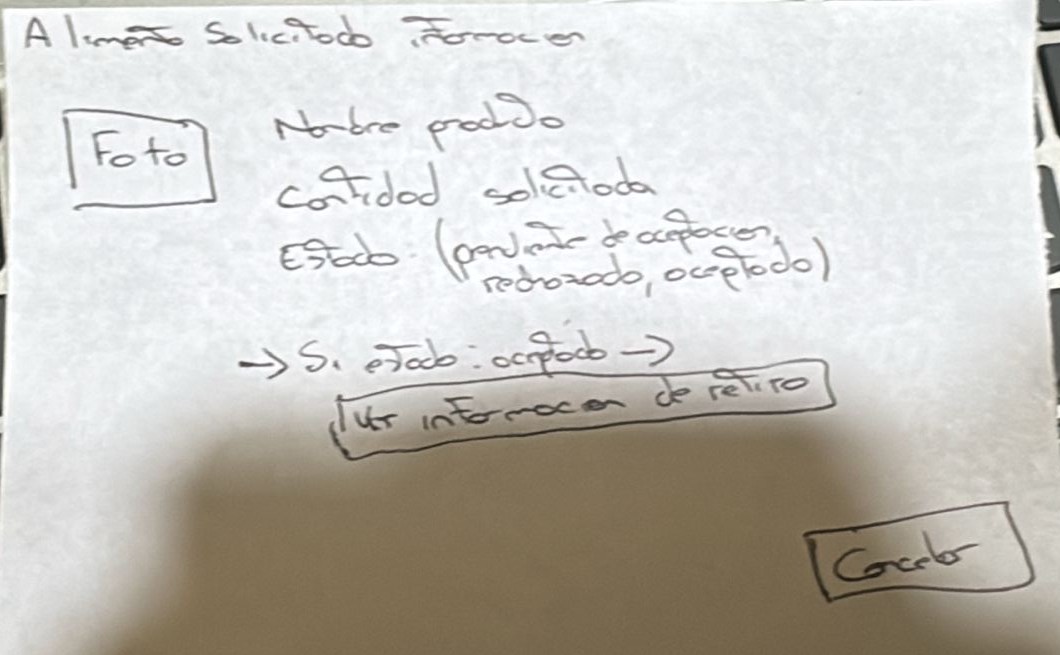 Alimento Solicitado información
Foto
Nombre producto
Cantidad solicitada
Estado: (pendiente de aceptacion,
rechazado, aceptado)
→ Si estado: aceptado →
Ver informacion de retiro
Cancelar